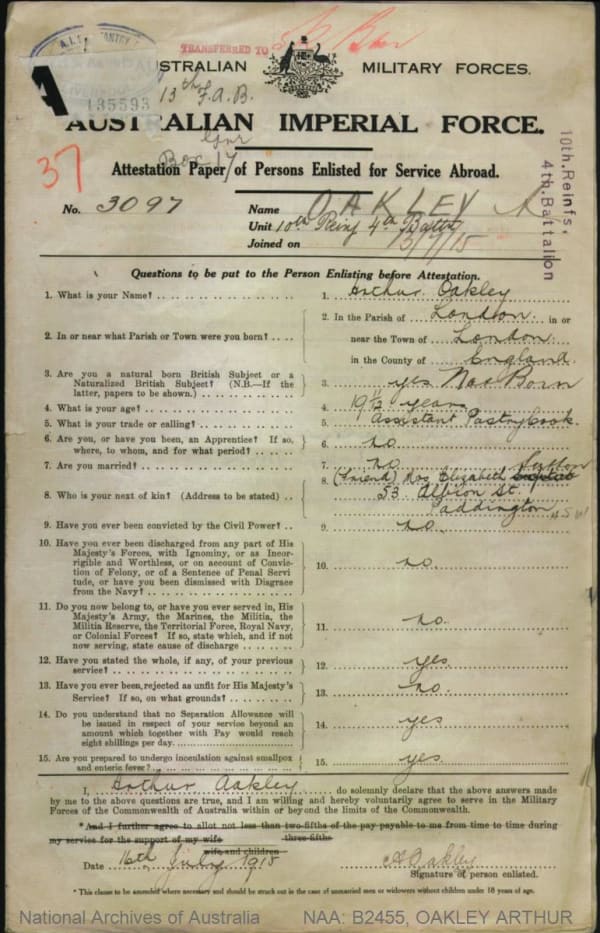 TRANSFERRED TO
135593
A
AUSTRALIAN MILITARY FORCES.
13th F.A.B.
AUSTRALIAN IMPERIAL FORCE.
Gnr
37
Box 17
Attestation Paper of Persons Enlisted for Service Abroad.
10th. Reinfs,
4th. Battalion
No. 3097
Name OAKLEY A
Unit 10th Reinf 4th Battn
Joined on 15/7/15
Questions to be put to the Person Enlisting before Attestation.
1. What is your Name? 1. Arthur Oakley
2. In or near what Parish or Town were you born? 2. In the Parish of London in or
near the Town of London
in the County of England
3. Are you a natural born British Subject or a
Naturalized British Subject? (N.B.—If the
latter, papers to be shown.) 3. yes Nat Born
4. What is your age? 4. 19 1/2 years
5. What is your trade or calling? 5. Assistant Pastry Cook.
6. Are you, or have you been, an Apprentice? If so,
where, to whom, and for what period? 6. no
7. Are you married? 7. no
8. Who is your next of kin? (Address to be stated) 8. (friend) Mrs Elizabeth Sutton
53 Albion St.
Paddington NSW
9. Have you ever been convicted by the Civil Power? 9. no
10. Have you ever been discharged from any part of His
Majesty's Forces, with Ignominy, or as Incor-
rigible and Worthless, or on account of Convic-
tion of Felony, or of a Sentence of Penal Servi
tude, or have you been Dismissed with Disgrace
from the Navy? 10. no.
11. Do you now belong to, or have you ever served in, His
Majesty's Army, the Marines, the Militia, the
Militia Reserve, the Territorial Force, Royal Navy,
or Colonial Forces? If so, state which, and if not
now serving, state cause of discharge 11. no.
12. Have you stated the whole, if any, of your previous
service? 12. yes
13. Have you ever been rejected as unfit for His Majesty's
Service? If so, on what grounds? 13. no.
14. Do you understand that no Separation Allowance will
be issued in respect of your service beyond an
amount which together with Pay would reach
eight shillings per day. 14. yes
15. Are you prepared to undergo inoculation against smallpox
and enteric fever? 15. yes.
I, Arthur Oakley do solemnly declare that the above answers made
by me to the above questions are true, and I am willing and hereby voluntarily agree to serve in the Military
Forces of the Commonwealth of Australia within or beyond the limits of the Commonwealth.
*And I further agree to allot not less than two-fifths of the pay payable to me from time to time during
three-fifths
my service for the support of my wife
wife and children
Date 16th July 1915
A Oakley
Signature of person enlisted.
*This clause to be amended where necessary and should be struck out in the case of unmarried men or widowers without children under 18 years of age.
National Archives of Australia NAA: B2455, OAKLEY ARTHUR